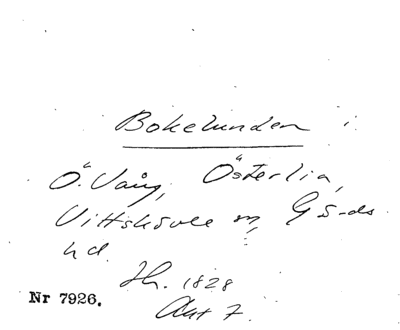 Bokelunden i
Ö. Vång, Österlia,
Vittskövle sn, Gärds
hd.
Jh. 1828
Akt 7.
Nr 7926.